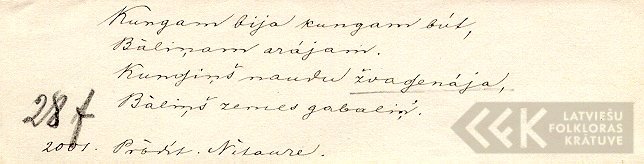 Kungam bija kungam būt,
Bāliņam arājam.
Kungiņš naudu žvadzenāja,
Bāliņš zemes gabaliņ'.
28 f
2001. Nītaure.
LATVIEŠU
FOLKLORAS
KRĀTUVE